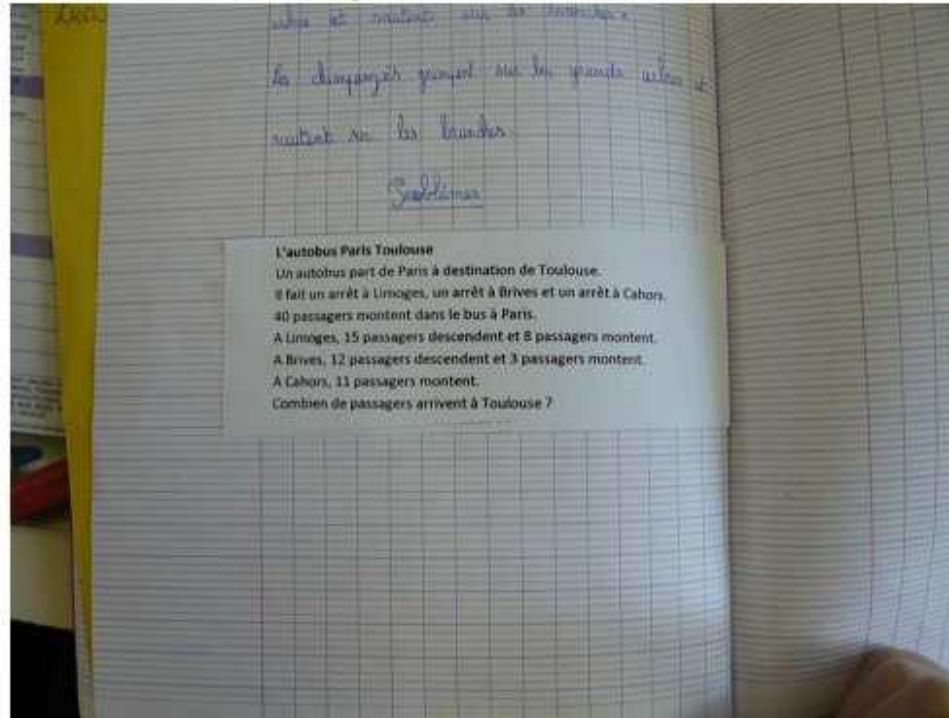 et sautent sur les branches.
Les chimpanzés grimpent sur les grands arbres et
sautent sur les branches.
Problèmes
L'autobus Paris Toulouse
Un autobus part de Paris à destination de Toulouse.
Il fait un arrêt à Limoges, un arrêt à Brives et un arrêt à Cahors.
40 passagers montent dans le bus à Paris.
A Limoges, 15 passagers descendent et 8 passagers montent.
A Brives, 12 passagers descendent et 3 passagers montent.
A Cahors, 11 passagers montent.
Combien de passagers arrivent à Toulouse ?